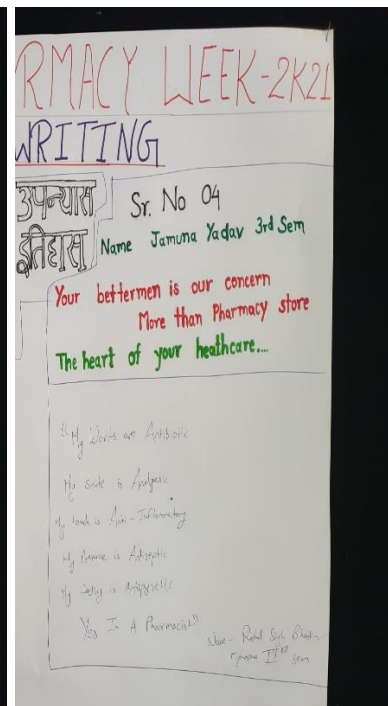 RMACY WEEK-2K21
WRITING
उपन्यास
इतिहास
Sr. No 04
Name Jamuna Yadav 3rd Sem
Your bettermen is our concern
More than Pharmacy store
The heart of your heathcare...
"My Words are Antibiotic
My Smile is Analgesic
My Touch is Anti-Inflammatory
My is Antiseptic
My is Antipyretic
Yes I A Pharmacist"
Name- Singh
Sem